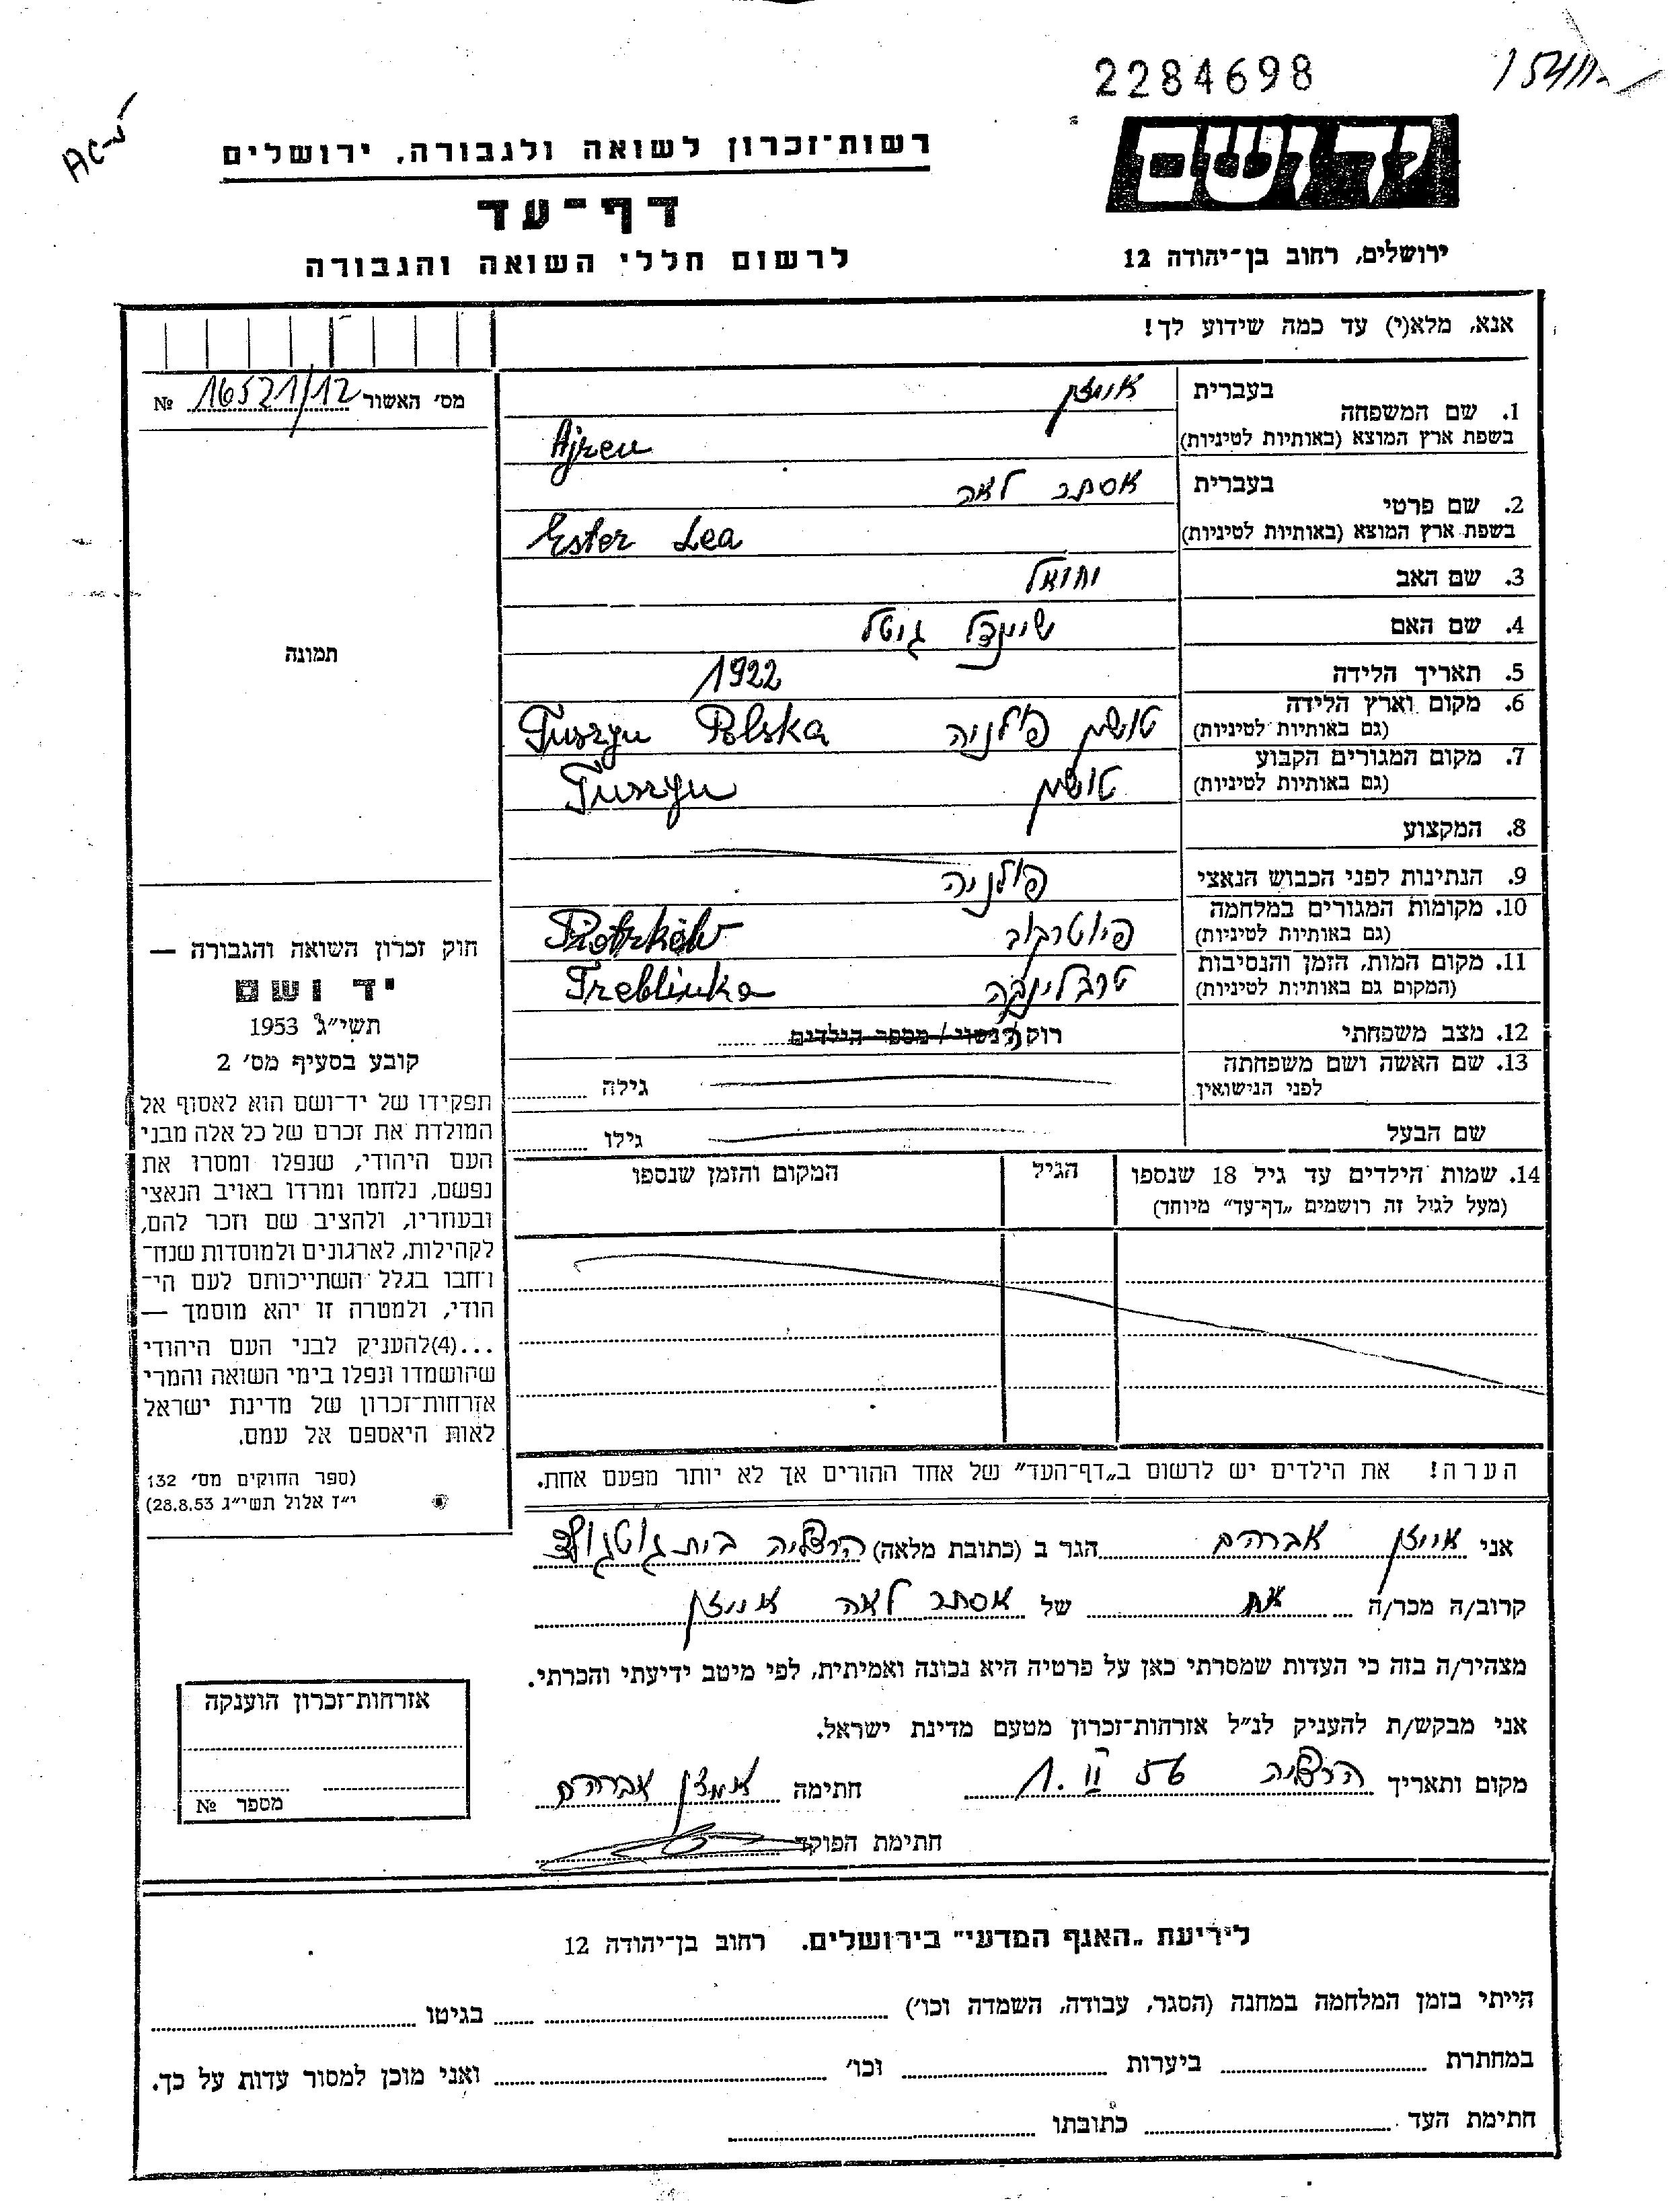 2284698
AC-5
יד ושם
רשות־זכרון לשואה ולגבורה, ירושלים
דף־עד
לרשום חללי השואה והגבורה
ירושלים, רחוב בן־יהודה 12
אנא, מלא(י) עד כמה שידוע לך!
מס׳ האשור 16521/12 №
1. שם המשפחה בעברית אייזן
בשפת ארץ המוצא (באותיות לטיניות) Ajzen
2. שם פרטי בעברית אסתר לאה
בשפת ארץ המוצא (באותיות לטיניות) Ester Lea
3. שם האב יחזאל
4. שם האם שיינדל גיטל
5. תאריך הלידה 1922
6. מקום וארץ הלידה טושין פולניה Tuszyn Polska
(גם באותיות לטיניות)
7. מקום המגורים הקבוע טושין Tuszyn
(גם באותיות לטיניות)
8. המקצוע
9. הנתינות לפני הכבוש הנאצי פולניה
10. מקומות המגורים במלחמה פיוטרקוב Piotrków
(גם באותיות לטיניות)
11. מקום המות, הזמן והנסיבות טרבלינקה Treblinka
(המקום גם באותיות לטיניות)
12. מצב משפחתי רוקה/נשוי/מספר הילדים
13. שם האשה ושם משפחתה גילה
לפני הנישואין
שם הבעל גילו
14. שמות הילדים עד גיל 18 שנספו הגיל המקום והזמן שנספו
(מעל לגיל זה רושמים „דף־עד” מיוחד)
תמונה
חוק זכרון השואה והגבורה —
יד ושם
תשי״ג 1953
קובע בסעיף מס׳ 2
תפקידו של יד־ושם הוא לאסוף אל
המולדת את זכרם של כל אלה מבני
העם היהודי, שנפלו ומסרו את
נפשם, נלחמו ומרדו באויב הנאצי
ובעוזריו, ולהציב שם וזכר להם,
לקהילות, לארגונים ולמוסדות שנח־
רבו בגלל השתייכותם לעם הי־
הודי, ולמטרה זו יהא מוסמך —
...(4)להעניק לבני העם היהודי
שהושמדו ונפלו בימי השואה והמרי
אזרחות־זכרון של מדינת ישראל
לאות היאספם אל עמם.
(ספר החוקים מס׳ 132
י״ז אלול תשי״ג 28.8.53)
הערה! את הילדים יש לרשום ב„דף־העד” של אחד ההורים אך לא יותר מפעם אחת.
אני אייזן אברהם הגר ב (כתובת מלאה) הרצליה בית גוטגולד
קרוב/ה מכר/ה אח של אסתר לאה אייזן
מצהיר/ה בזה כי העדות שמסרתי כאן על פרטיה היא נכונה ואמיתית, לפי מיטב ידיעתי והכרתי.
אני מבקש/ת להעניק לנ״ל אזרחות־זכרון מטעם מדינת ישראל.
מקום ותאריך הרצליה 1. II 56 חתימה אייזן אברהם
חתימת הפוקד
אזרחות־זכרון הוענקה
מספר №
לידיעת „האגף המדעי” בירושלים. רחוב בן־יהודה 12
הייתי בזמן המלחמה במחנה (הסגר, עבודה, השמדה וכו׳) בגיטו
במחתרת ביערות וכו׳ ואני מוכן למסור עדות על כך.
חתימת העד כתובתו